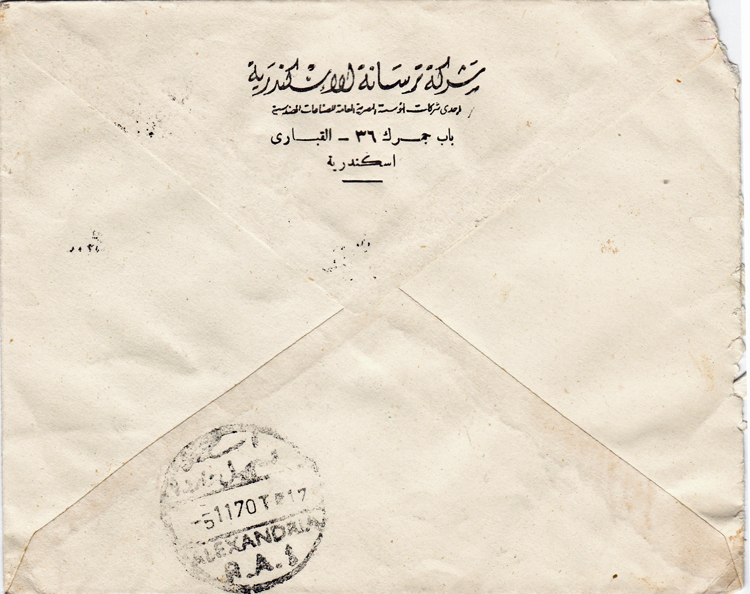 شركة ترسانة الإسكندرية
إحدى شركات المؤسسة المصرية العامة للصناعات الهندسية
باب جمرك ٣٦ - القبارى
اسكندرية
-51170T 17
ALEXANDRIA
R.A.